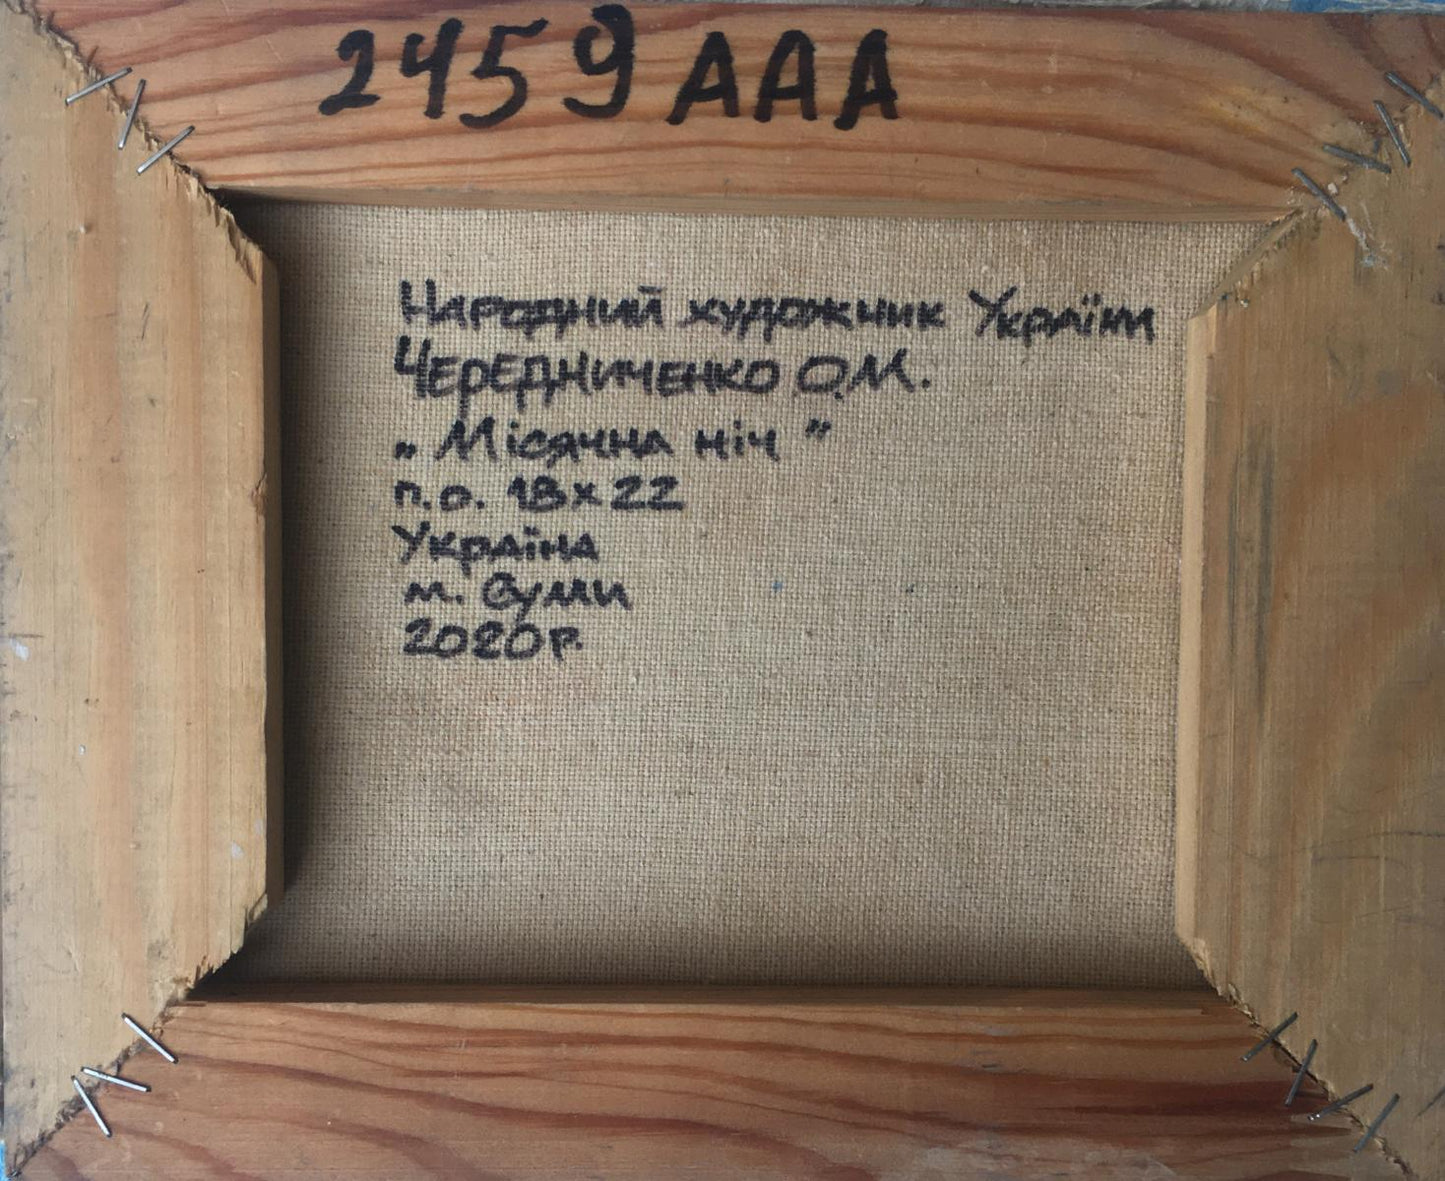 2459 ААА
Народний художник України
Чередниченко О.М.
„ Місячна ніч ”
п.о. 18х22
Україна
м. Суми
2020р.